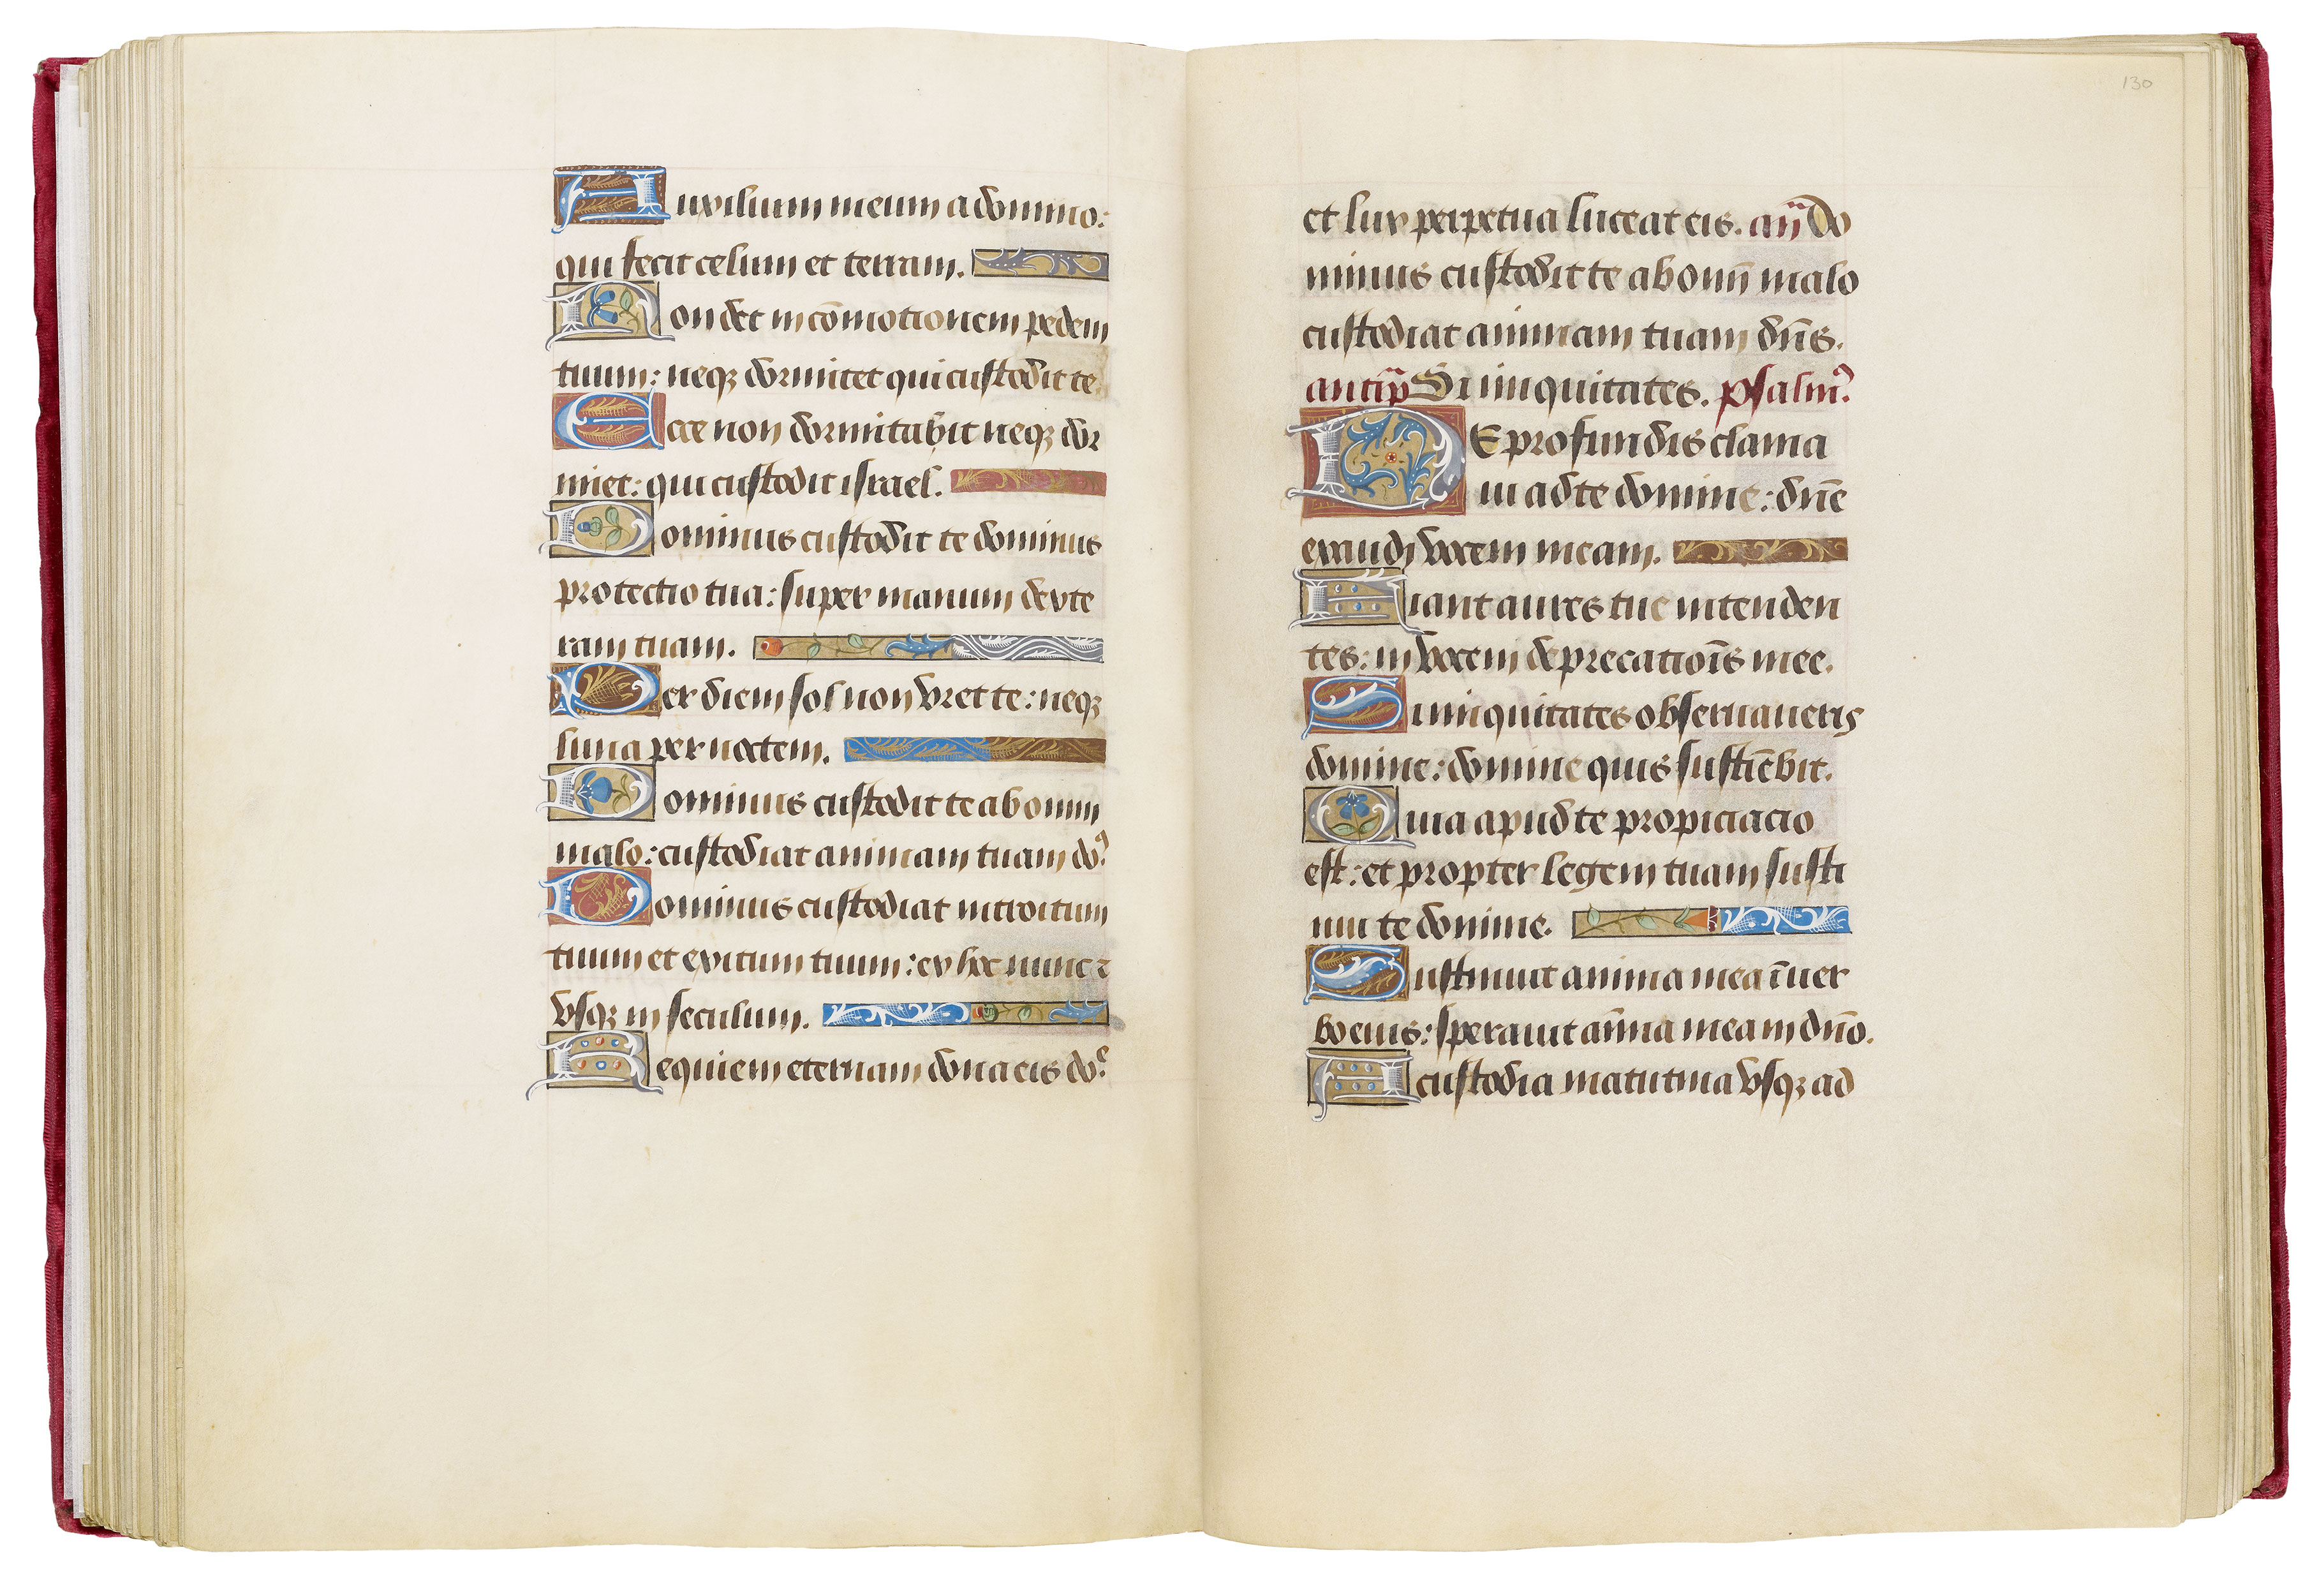 Auxilium meum a domino:
qui fecit celum et terram.
Non det in cōmotionem pedem
tuum: neqꝫ dormitet qui custodit te
Ecce non dormitabit neqꝫ dor
miet: qui custodit israel.
Dominus custodit te dominus
protectio tua: super manum dexte
ram tuam.
Per diem sol non vret te: neqꝫ
luna per noctem.
Dominus custodit te ab omni
malo: custodiat animam tuam do᷒
Dominus custodiat introitum
tuum et exitum tuum: ex hoc nunc ⁊
vsqꝫ in seculum.
Requiem eternam dona eis do᷒
130
et lux perpetua luceat eis. an̄ Do
minus custodit te ab omni malo
custodiat animam tuam dn̄s.
antip̄ Si iniquitates. psalm᷒
DE profundis clama
ui ad te domine: dn̄e
exaudi vocem meam.
Fiant aures tue intenden
tes: in vocem deprecatiōis mee.
Si iniquitates obseruaueris
domine: domine quis sustiēbit.
Quia apud te propiciacio
est: et propter legem tuam susti
nui te domine.
Sustinuit anima mea ī uer
bo eius: sperauit aīma mea in dn̄o.
A custodia matutina vsqꝫ ad